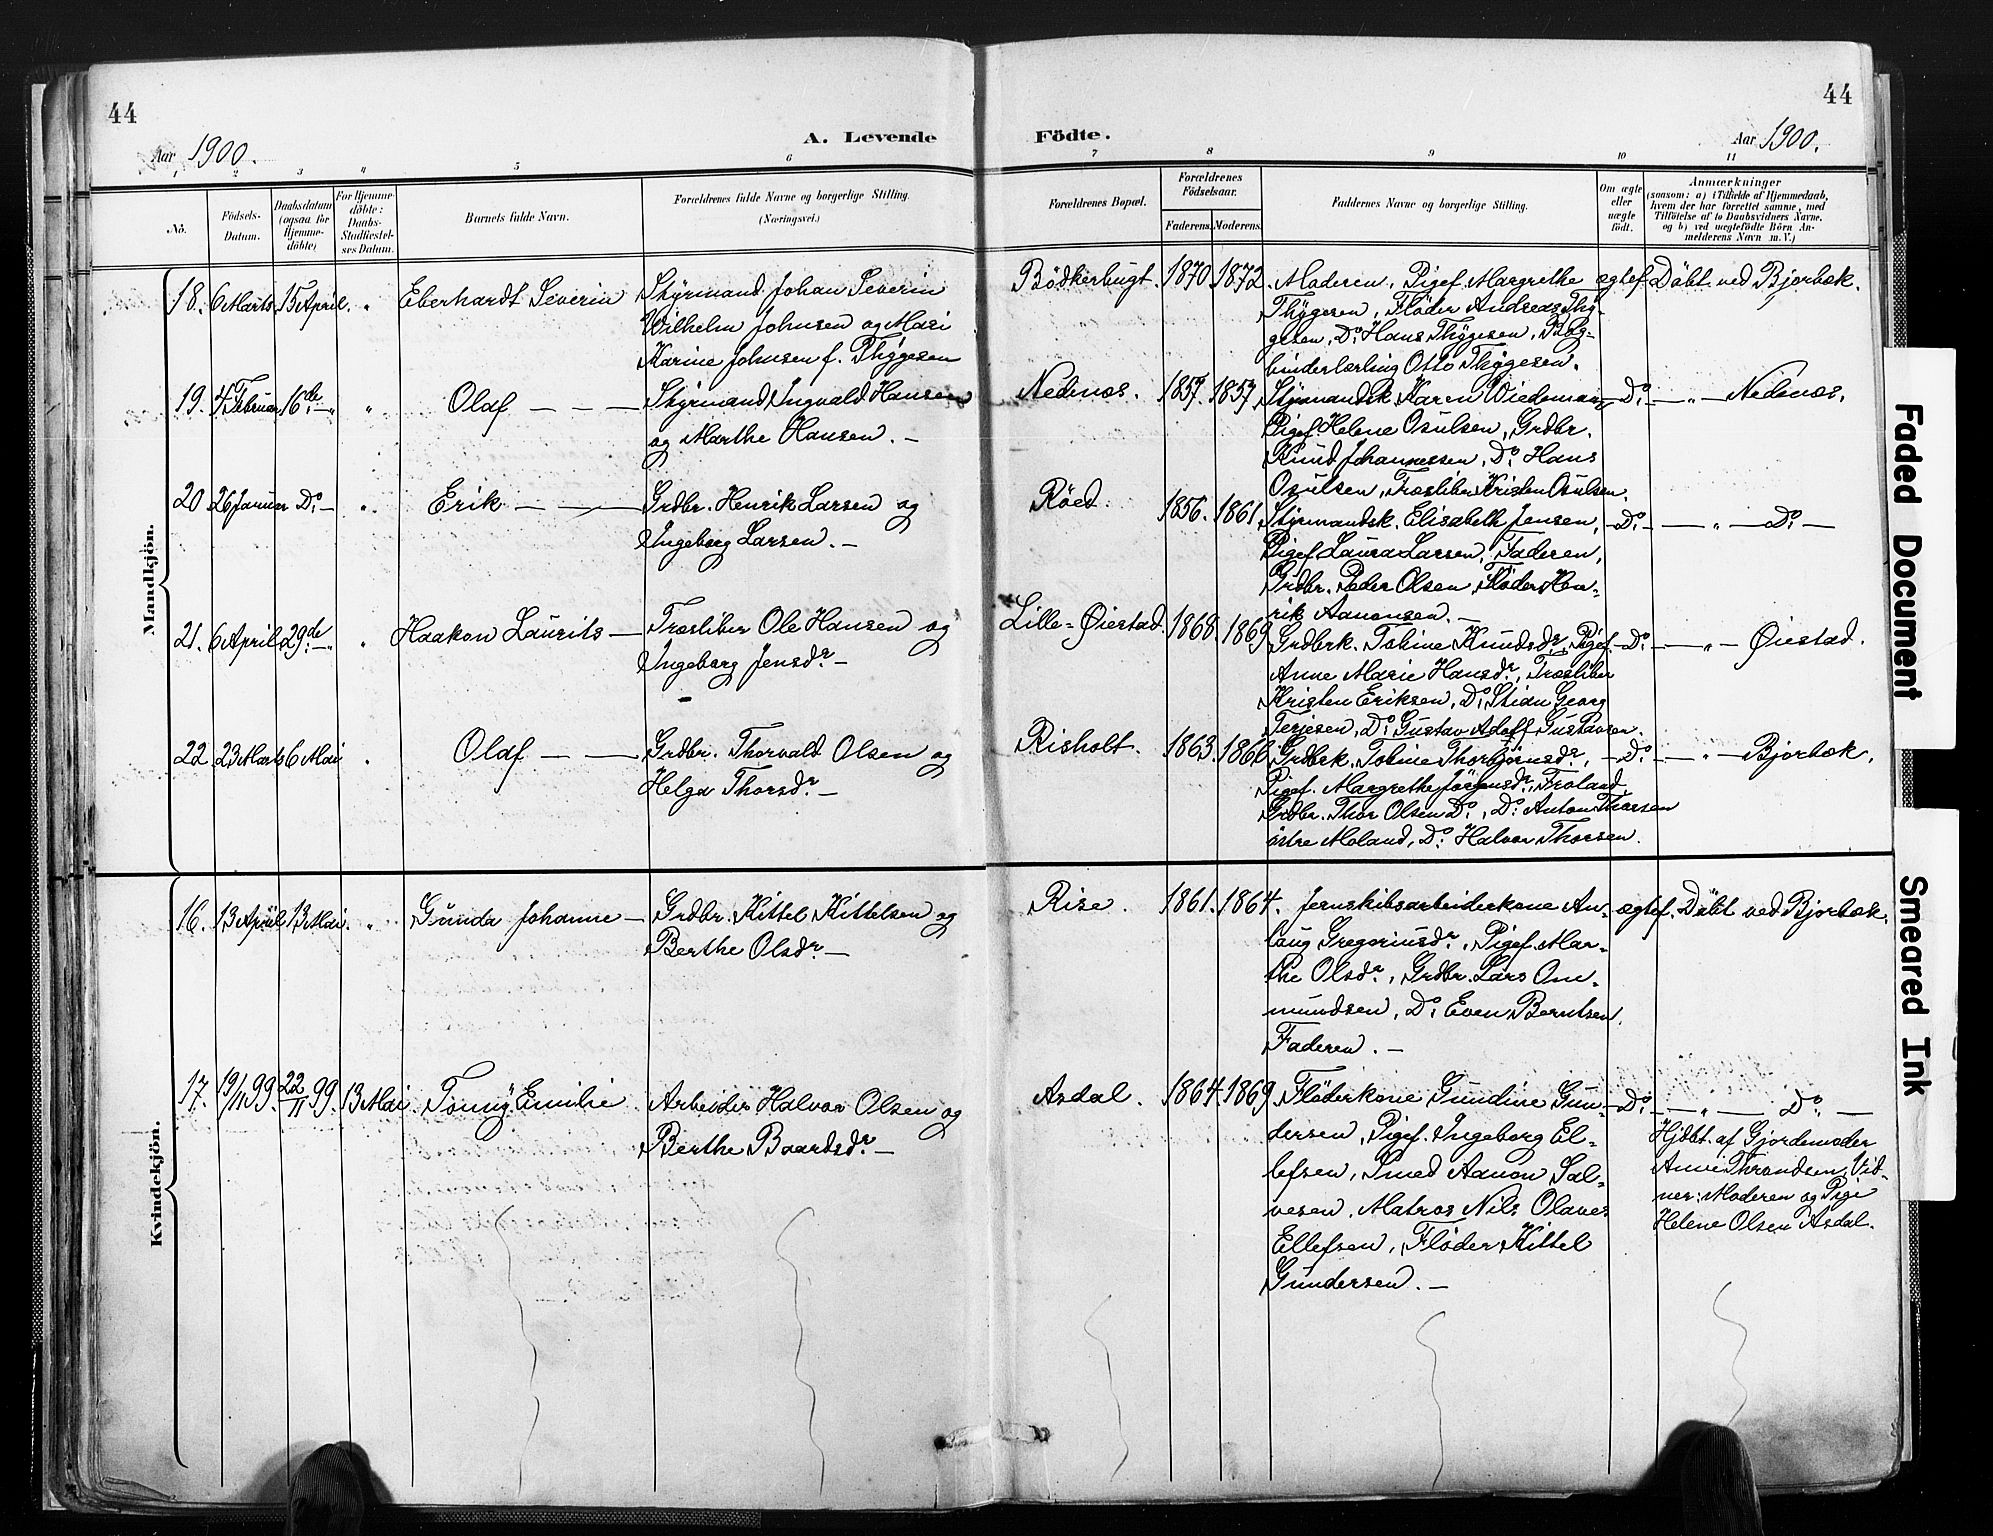 44
44
Aar 1900.
A. Levende Födte.
Aar 1900.
1 2 3 4 5 6 7 8 9 10 11
No.
Födsels-Datum.
Daabsdatum (ogsaa for Hjemmedöbte)
For Hjemmedöbte: Daabs-Stadfæstelses Datum.
Barnets fulde Navn.
Forældrenes fulde Navne og borgerlige Stilling. (Næringsvei.)
Forældrenes Bopæl.
Forældrenes Födselsaar.
Faderens. Moderens.
Faddernes Navne og borgerlige Stilling.
Om ægte eller uægte födt.
Anmærkninger
(saasom: a) i Tilfælde af Hjemmedaab, hvem der har forrettet samme, med Tilföielse af to Daabsvidners Navne. og b) ved uægtefödte Börn Anmelderens Navn m. V.)
Mandkjön.
18. 6 Marts 15 April. " Eberhardt Severin
Styrmand Johan Severin
Wilhelm Johnsen og Mari
Karine Johnsen f. Thygesen
Bödkerbugt. 1870. 1872.
Moderen, Pigef. Margrethe
Thygesen, Fløder Andreas Thy-
gesen, Do. Hans Thygesen, Bog-
binderlærling Otto Thygesen.
ægtef. Döbt ved Bjorbæk.
19. 4 Februar 16de — " Olaf — —
Styrmand Ingvald Hansen
og Marthe Hansen. —
Nedenæs. 1857. 1857.
Styrmandsk. Karen Wiedemann
Pigef. Helene Osulsen, Grdbr.
Knud Johannessen, Do. Hans
Osulsen, Træsliber Kristen Osulsen.
Do. — " — Nedenæs.
20 26 Januar Do. — " Erik — —
Grdbr. Henrik Larsen og
Ingeborg Larsen. —
Röed. 1856. 1861.
Styrmandsk. Elisabeth Jensen,
Pigef. Laura Larsen, Faderen,
Grdbr. Peder Olsen, Fløder Hen-
rik Aanonsen. —
Do. — " — Do. —
21. 6 April 29de — " Haakon Laurits —
Træsliber Ole Hansen og
Ingeborg Jensdr. —
Lille-Øiestad. 1868. 1869.
Grdbrk. Tobine Knudsdr., Pigef.
Anne Marie Hansdr., Træsliber
Kristen Eriksen, Do. Stian Georg
Terjesen, Do. Gustav Adolf Gustavsen.
Do. — " — Øiestad.
22. 23 Marts 6 Mai " Olaf — —
Grdbr. Thorvald Olsen og
Helga Thorsdr. —
Risholt. 1863. 1866.
Grdbrk. Tobine Thorbjørnsdr.,
Pigef. Margrethe Jörgensdr., Froland,
Grdbr. Thor Olsen Do., Do. Anton Thorsen
östre Moland, Do. Halvor Thorsen.
Do. — " — Bjorbæk.
Kvindekjön.
16. 13 April 13 Mai. " Gunda Johanne —
Grdbr. Kittel Kittelsen og
Berthe Olsdr. —
Rise. 1861. 1864.
Jernskibsarbeiderkone An-
laug Gregoriusdr., Pigef. Mar-
the Olsdr., Grdbr. Lars Om-
mundsen, Do. Even Berntsen,
Faderen. —
ægtef. Döbt ved Bjorbæk.
17. 19/11 99. 22/11 99. 13 Mai Tonny Emilie
Arbeider Halvor Olsen og
Berthe Baardsdr. —
Asdal. 1864. 1869.
Fløderkone Gundine Gun-
dersen, Pigef. Ingeborg El-
lefsen, Smed Aanon Sal-
vesen, Matros Nils Olaves
Ellefsen, Fløder Kittel
Gundersen. —
Do. — " — Do. —
Hjdbt. af Gjordemoder
Anne Throndsen, Vid-
ner: Moderen og Pige
Helene Olsen Asdal.
Faded Document
Smeared Ink